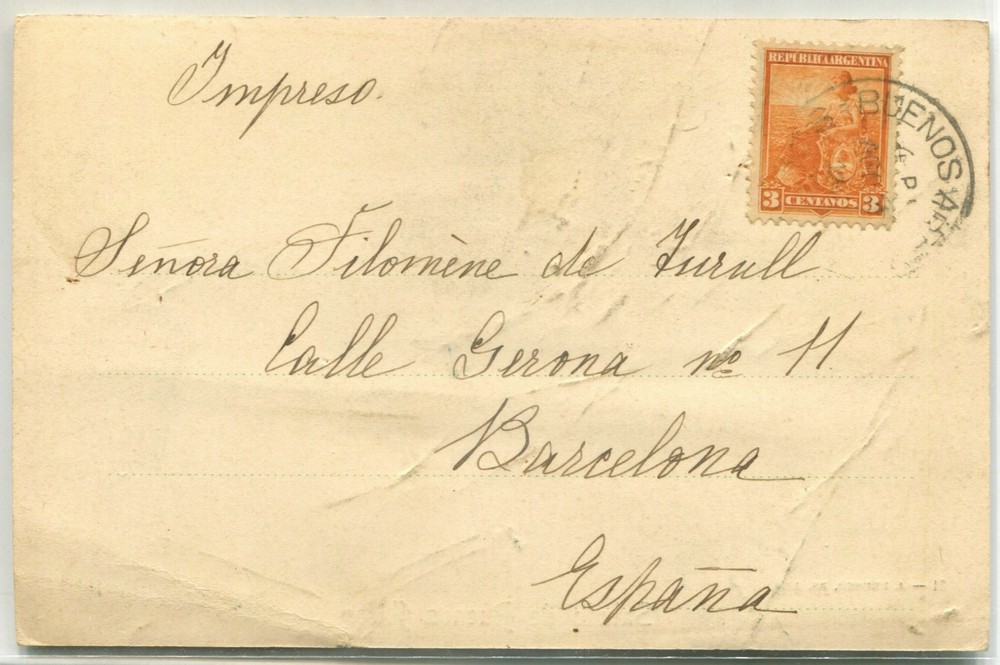 Impreso.
REPUBLICA ARGENTINA
3 CENTAVOS 3
BUENOS AIRES
Señora Filomène de Turull
Calle Gerona nº 11
Barcelona
España